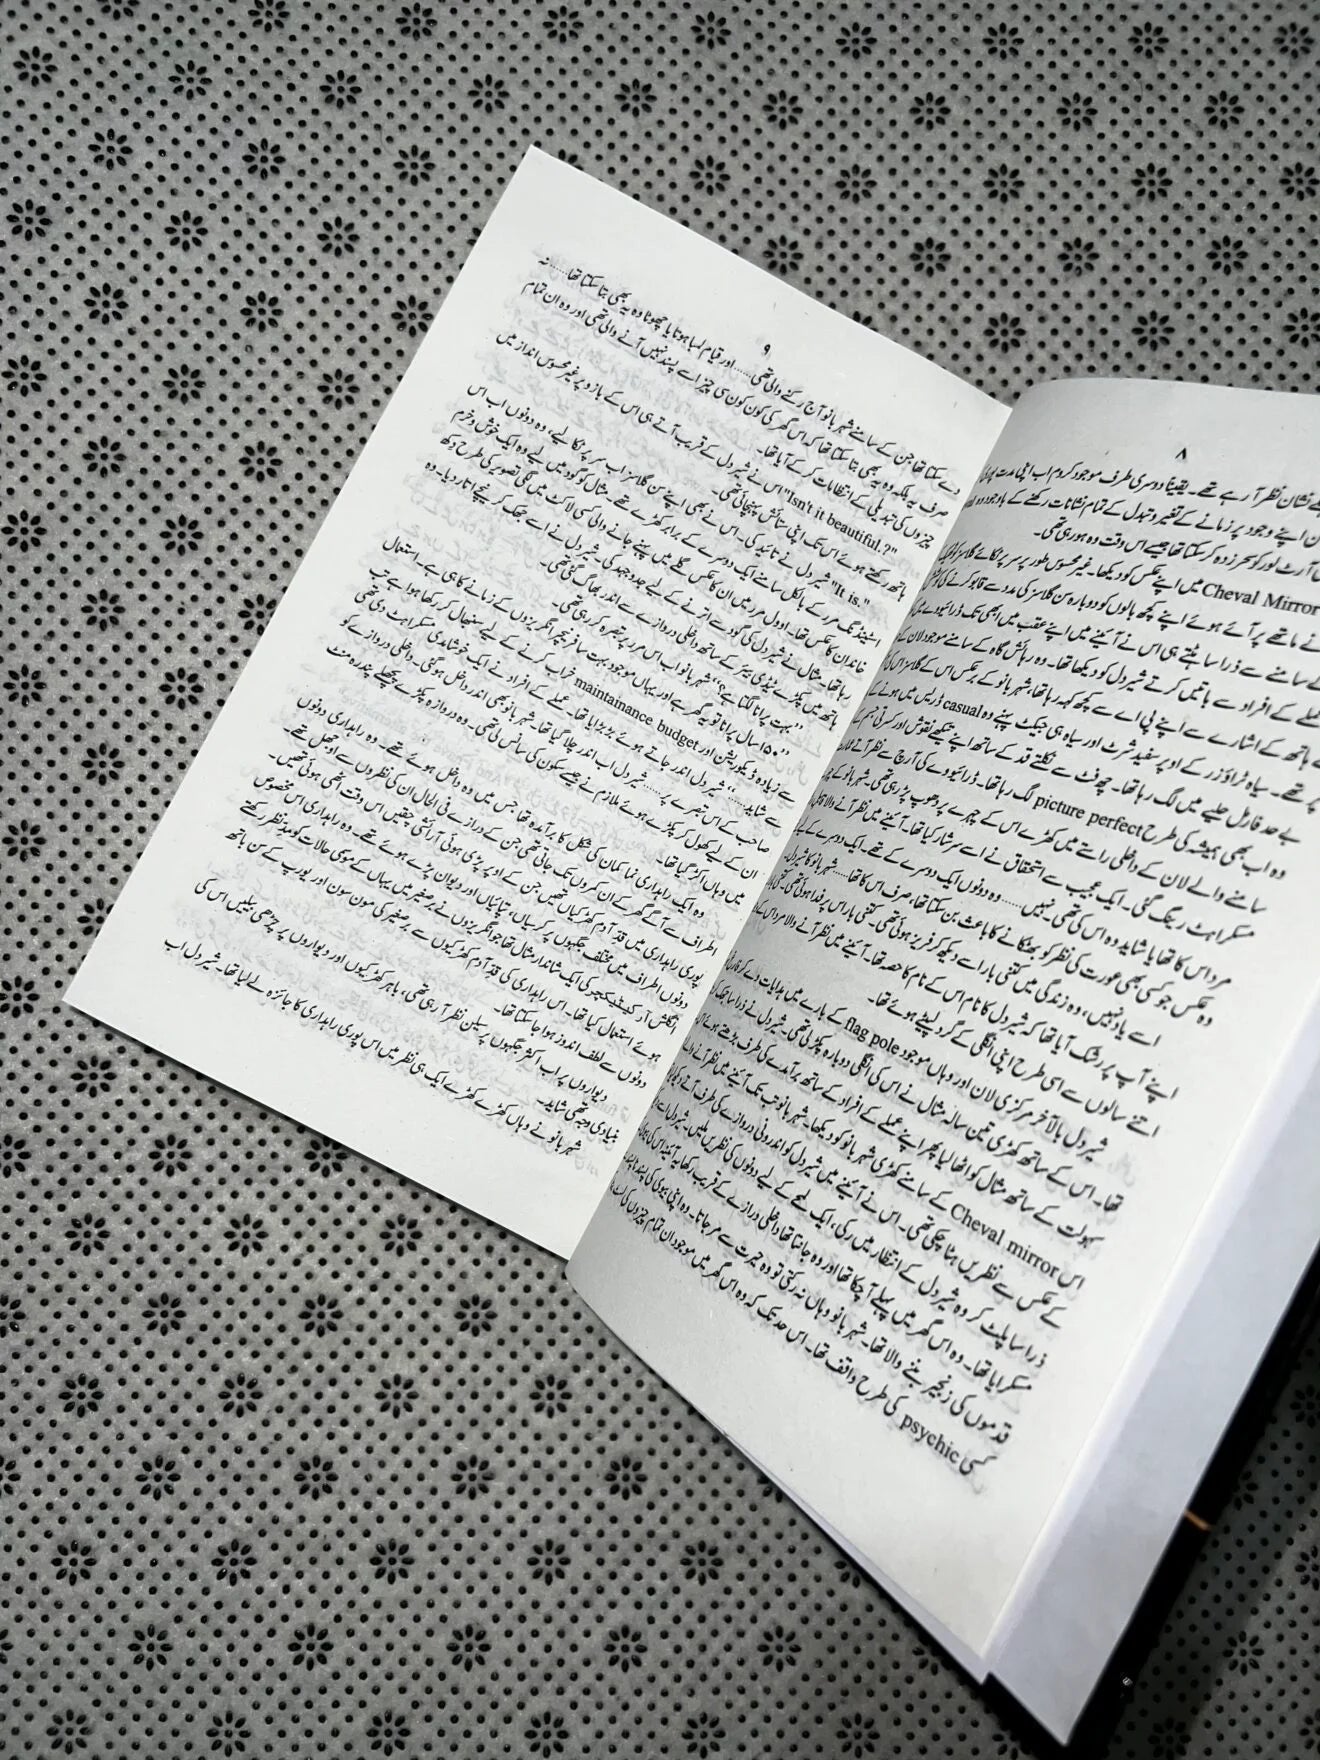 ۸
نشان نظر آ رہے تھے۔ یقیناً دوسری طرف موجود کروم اب اپنی مدت پوری
ن اپنے وجود پر زمانے کے تغیر و تبدل کے تمام نشانات رکھنے کے باوجود وہ
آرٹ لور کو سحر زدہ کر سکتا تھا جیسے اس وقت وہ ہو رہی تھی۔
Cheval Mirror میں اپنے عکس کو دیکھا۔ غیر محسوس طور پر سر پر ٹکائے گلاسز کو
نے ماتھے پر آئے ہوئے اپنے کچھ بالوں کو دوبارہ سن گلاسز کی مدد سے قابو کرنے کی کوشش
کے سامنے سے ذرا سا ہٹتے ہی اس نے آئینے میں اپنے عقب میں ابھی تک ڈرائیو وے میں
عملے کے افراد سے باتیں کرتے شیر دل کو دیکھا تھا۔ وہ رہائش گاہ کے سامنے موجود لان کے
ہاتھ کے اشارے سے اپنے پی اے سے کچھ کہہ رہا تھا، شہر بانو کے برعکس اس کے گلاسز اس کی
پر تھے۔ سیاہ ٹراؤزر کے اوپر سفید شرٹ اور سیاہ ہی جیکٹ پہنے وہ casual ڈریس میں ہونے کے
بے حد فارمل حلیے میں لگ رہا تھا۔ چھ فٹ سے نکلتے قد کے ساتھ اپنے تیکھے نقوش اور کسرتی جسم کے
وہ اب بھی ہمیشہ کی طرح picture perfect لگ رہا تھا۔ ڈرائیو وے کی آرچ سے نظر آنے
سامنے والے لان کے داخلی راستے میں کھڑے اس کے چہرے پر دھوپ پڑ رہی تھی۔ شہر بانو کے
مسکراہٹ رینگ گئی۔ ایک عجیب سے استحقاق نے اسے سرشار کیا تھا۔ آئینے میں نظر آنے والا
مرد اس کا تھا یا شاید وہ اس کی تھی۔ نہیں...... وہ دونوں ایک دوسرے کے تھے۔ ایک دوسرے کے لیے
وہ عکس جو کسی بھی عورت کی نظر کو بھٹکانے کا باعث بن سکتا تھا، صرف اس کا تھا...... شہر بانو کا شیر دل۔
اسے یاد نہیں، وہ زندگی میں کتنی بار اسے دیکھ کر فریز ہوئی تھی۔ کتنی بار اس پر فدا ہوئی تھی۔
اپنے آپ پر رشک آیا تھا کہ شیر دل کا نام اس کے نام کا حصہ تھا۔ آئینے میں نظر آنے والا مرد اس کے
اتنے سالوں سے اسی طرح اپنی انگلی کے گرد لپیٹے ہوئے تھا۔
شیر دل بالآخر مرکزی لان اور وہاں موجود flag pole کے بارے میں ہدایات دے کر فارغ
تھا۔ اس کے ساتھ کھڑی تین سالہ مثال نے اس کی انگلی دوبارہ پکڑ لی تھی۔ شیر دل نے ذرا سا جھک کر
سہولت کے ساتھ مثال کو اٹھا لیا پھر اپنے عملے کے افراد کے ساتھ برآمدے کی طرف بڑھتے ہوئے
اس Cheval mirror کے سامنے کھڑی شہر بانو کو دیکھا۔ شہر بانو تب تک آئینے میں نظر آنے والے
کے عکس سے نظریں ہٹا چکی تھی۔ اس نے آئینے میں شیر دل کو اندرونی دروازے کی طرف آتے دیکھا
ذرا سا پلٹ کر وہ شیر دل کے انتظار میں رکی، ایک لمحے کے لیے دونوں کی نظریں ملیں۔ شیر دل اسے
مسکرایا تھا۔ وہ اس گھر میں پہلے آ چکا تھا اور وہ جانتا تھا داخلی دروازے کے قریب رکھا یہ آئینہ اس کی بیوی
قدموں کی زنجیر بننے والا تھا۔ شہر بانو وہاں نہ رکتی تو وہ حیرت سے مر جاتا۔ وہ اپنی بیوی کی پسند ناپسند
کسی psychic کی طرح واقف تھا۔ اس حد تک کہ وہ اس گھر میں موجود ان تمام چیزوں کی
۹
دے سکتا تھا جن کے سامنے شہر بانو آج رکنے والی تھی...... اور قیام لمبا ہوتا یا چھوٹا وہ یہ بھی بتا سکتا تھا...... نہ
صرف یہ بلکہ وہ یہ بھی بتا سکتا تھا کہ اس گھر کی کون کون سی چیز اسے پسند نہیں آنے والی تھی اور وہ ان تمام
چیزوں کی تبدیلی کے انتظامات کر کے آیا تھا۔
"Isn't it beautiful.?" اس نے شیر دل کے قریب آتے ہی اس کے بازو پر غیر محسوس انداز میں
ہاتھ رکھتے ہوئے اس تک اپنی ستائش پہنچائی تھی۔
"It is." شیر دل نے تائید کی۔ اس نے بھی اپنے سن گلاسز اب سر پر ٹکا لیے، وہ دونوں اب اس
اسٹینڈنگ مرر کے بالکل سامنے ایک دوسرے کے برابر کھڑے تھے۔ مثال کو گود میں لیے وہ ایک خوش و خرم
خاندان کا عکس تھا۔ اوول مرر میں ان کا عکس گلے میں پہنے جانے والی کسی لاکٹ میں لگی تصویر کی طرح دکھ
رہا تھا۔ مثال نے شیر دل کی گود سے اترنے کے لیے جدوجہد کی۔ شیر دل نے اسے جھک کر نیچے اتار دیا۔ وہ
ہاتھ میں پکڑے ٹیڈی بیئر کے ساتھ داخلی دروازے سے اندر بھاگ گئی تھی۔
”بہت پرانا لگتا ہے؟“ شہر بانو اب اس مرر پر تبصرہ کر رہی تھی۔
”۱۵۰ سال پرانا تو یہ گھر ہے اور یہاں موجود بہت سا فرنیچر انگریزوں کے زمانے کا ہی ہے۔ استعمال
سے زیادہ ڈیکوریشن اور maintainance budget خراب کرنے کے لیے سنبھال کر رکھا ہوا ہے تب
سے شاید......“ شیر دل اندر جاتے ہوئے بڑبڑایا تھا۔ عملے کے افراد نے ایک خوشامدی مسکراہٹ دی تھی
صاحب کے اس تبصرے پر...... شیر دل اب اندر چلا گیا تھا۔ شہر بانو بھی اندر داخل ہو گئی۔ داخلی دروازے کو
ان کے لیے کھول کر پکڑے ہوئے ملازم نے جیسے سکون کی سانس لی تھی۔ وہ دروازہ پکڑے پچھلے پندرہ منٹ
میں وہاں اکڑ گیا تھا۔
وہ ایک راہداری نما کمان کی شکل کا برآمدہ تھا جس میں وہ داخل ہوئے تھے۔ وہ راہداری دونوں
اطراف سے آگے گھر کے ان کمروں تک جاتی تھی جن کے دروازے فی الحال ان کی نظروں سے اوجھل تھے۔
پوری راہداری میں قد آدم کھڑکیاں تھیں جن کے اوپر پڑی ہوئی آرائشی چقیں اس وقت اٹھی ہوئی تھیں۔
دونوں اطراف میں مختلف جگہوں پر کرسیاں، تپائیاں اور دیوان پڑے ہوئے تھے۔ وہ راہداری اس مخصوص
انگلش آرکیٹیکچر کی ایک شاندار مثال تھا جو انگریزوں نے برصغیر میں یہاں کے موسمی حالات کو مدنظر رکھتے
ہوئے استعمال کیا تھا۔ اس راہداری کی قد آدم کھڑکیوں سے برصغیر کی مون سون اور یورپ کے سن باتھ
دونوں سے لطف اندوز ہوا جا سکتا تھا۔
دیواروں پر اب اکثر جگہوں پر سیلن نظر آ رہی تھی، باہر کھڑکیوں اور دیواروں پر چڑھی بیلیں اس کی
بنیادی وجہ تھی شاید۔
شہر بانو نے وہاں کھڑے کھڑے ایک ہی نظر میں اس پوری راہداری کا جائزہ لے لیا تھا۔ شیر دل اب